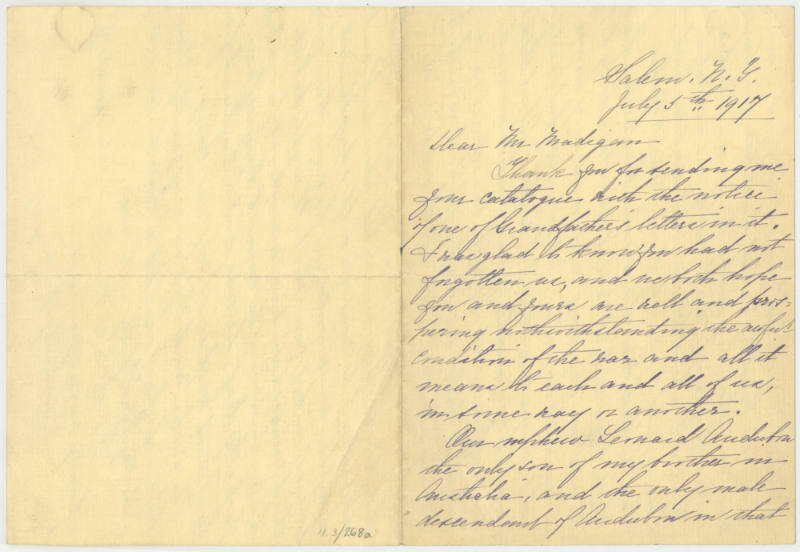 Salem. N. Y.
July 5th 1917
Dear Mr Madigan
Thank you for sending me
your catalogue with the notice
of one of Grandfather's letters in it.
I was glad to know you had not
forgotten us, and we both hope
you and yours are well and pros-
pering notwithstanding the awful
condition of the war and all it
means to each and all of us,
in some way or another.
Our nephew Leonard Audubon
the only son of my brother in
Australia, and the only male
descendant of Audubon in that
11.3/268a